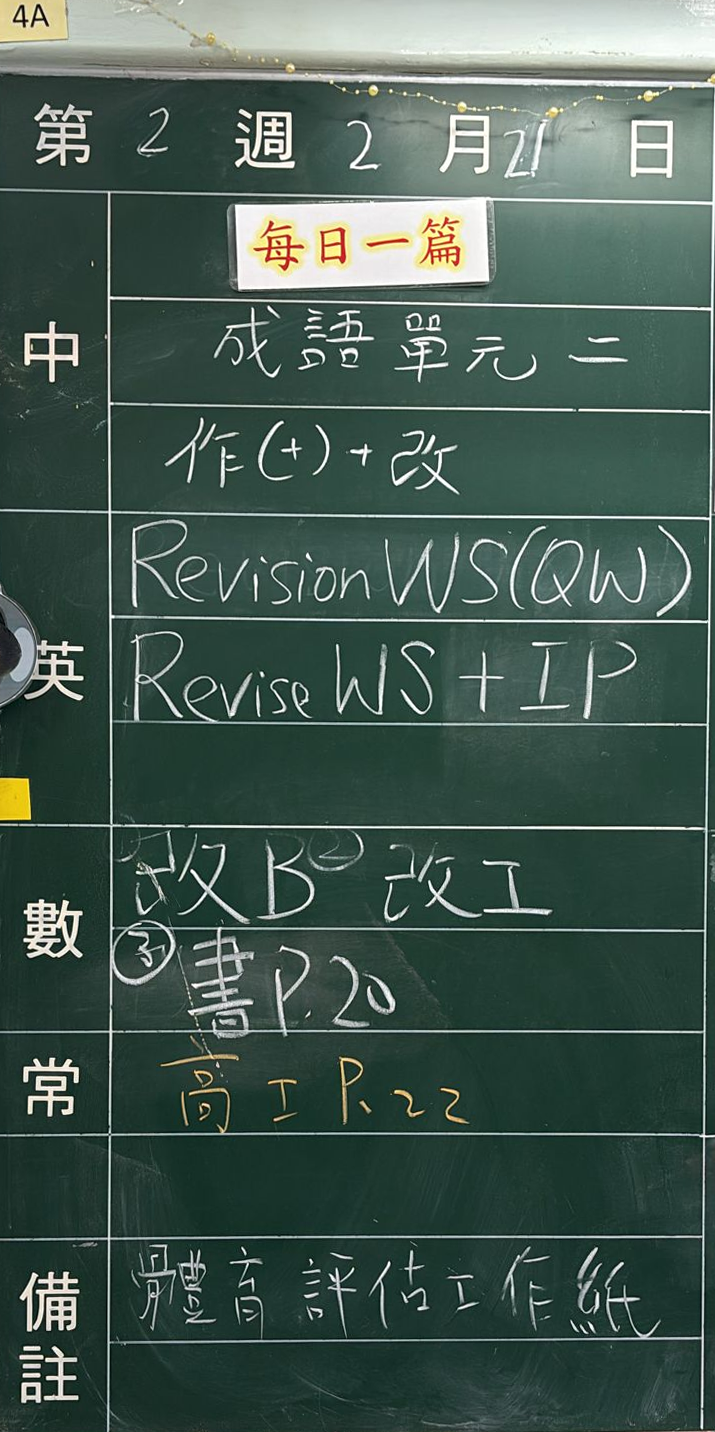 4A
第 2 週 2 月 21 日
中
每日一篇
成語單元二
作(+)+改
英
Revision WS(QW)
Revise WS + IP
數
改B② 改工
③ 書P.20
常
高工P.22
備註
體育評估工作紙